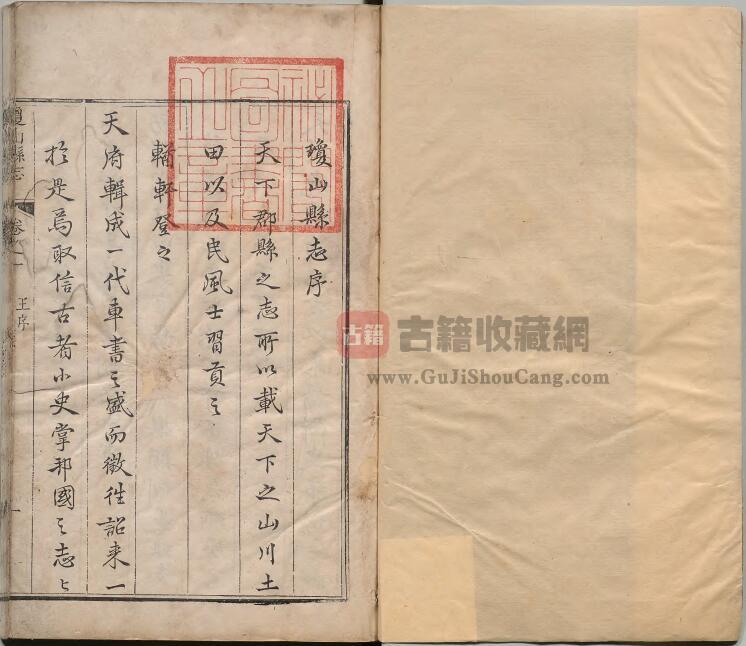 瓊山縣志序
天下郡縣之志所以載天下之山川土
田以及民風士習貢之
輶軒登之
天府輯成一代車書之盛而徵往詔来一
於是焉取信古者小史掌邦國之志
瓊山縣志
卷之一
王序
古籍
古籍收藏網
www.GuJiShouCang.com